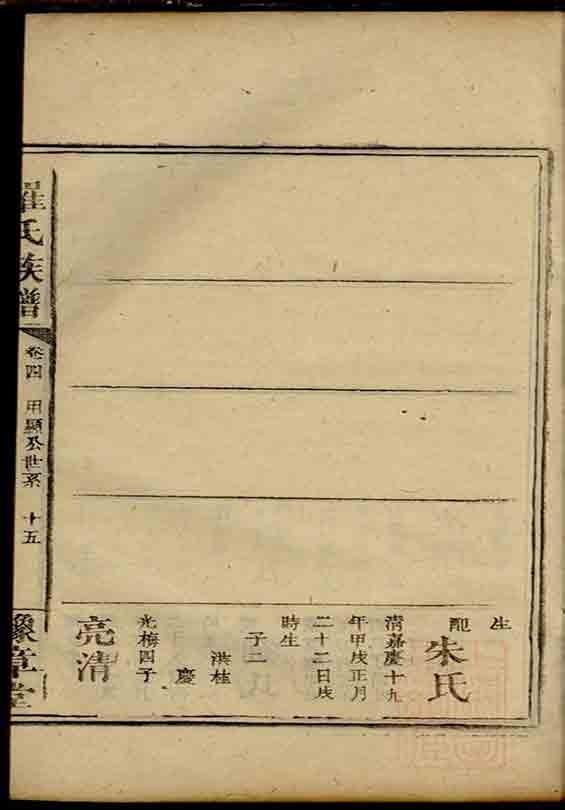 生
配朱氏
清嘉慶十九
年甲戌正月
二十二日戌
時生
子二
洪桂
慶
光梅四子
亮清
羅氏族譜
卷四 用顯公世系 十五
豫章堂